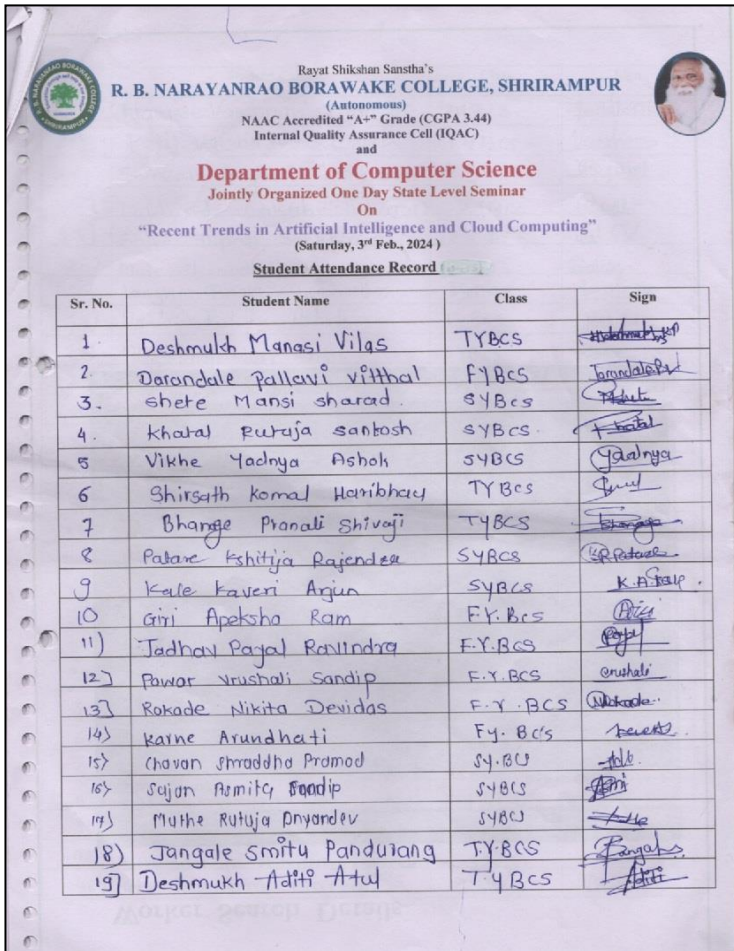 Rayat Shikshan Sanstha's
R. B. NARAYANRAO BORAWAKE COLLEGE, SHRIRAMPUR
(Autonomous)
NAAC Accredited "A+" Grade (CGPA 3.44)
Internal Quality Assurance Cell (IQAC)
and
Department of Computer Science
Jointly Organized One Day State Level Seminar
On
"Recent Trends in Artificial Intelligence and Cloud Computing"
(Saturday, 3rd Feb., 2024 )
Student Attendance Record
Sr. No. Student Name Class Sign
1. Deshmukh Manasi Vilas TYBCS
2. Darandale Pallavi vitthal FYBCS Darandale
3. Shete Mansi sharad. SYBCS
4. Khatal Rutuja santosh SYBCS. Khatal
5 Vikhe Yadnya Ashok SYBCS Yadnya
6 Shirsath Komal Haribhau TYBCS
7 Bhange Pranali Shivaji TYBCS
8 Patare Kshitija Rajendra SYBCS K.R.Patare
9 Kale Kaveri Arjun SYBCS K.A.Kale.
10 Giri Apeksha Ram F.Y.BCS Giri
11) Jadhav Payal Ravindra F.Y.BCS Payal
12] Pawar Vrushali Sandip F.Y.BCS Vrushali
13] Rokade Nikita Devidas F.Y.BCS NRokade
14) Karne Arundhati Fy. BCS
15) Chavan Shraddha Pramod SY.BCS
16) Sajan Asmita Sandip SYBCS
17) Muthe Rutuja Dnyandev SYBCS
18) Jangale Smitu Pandurang T.Y.BCS
19] Deshmukh Aditi Atul T.Y BCS Aditi